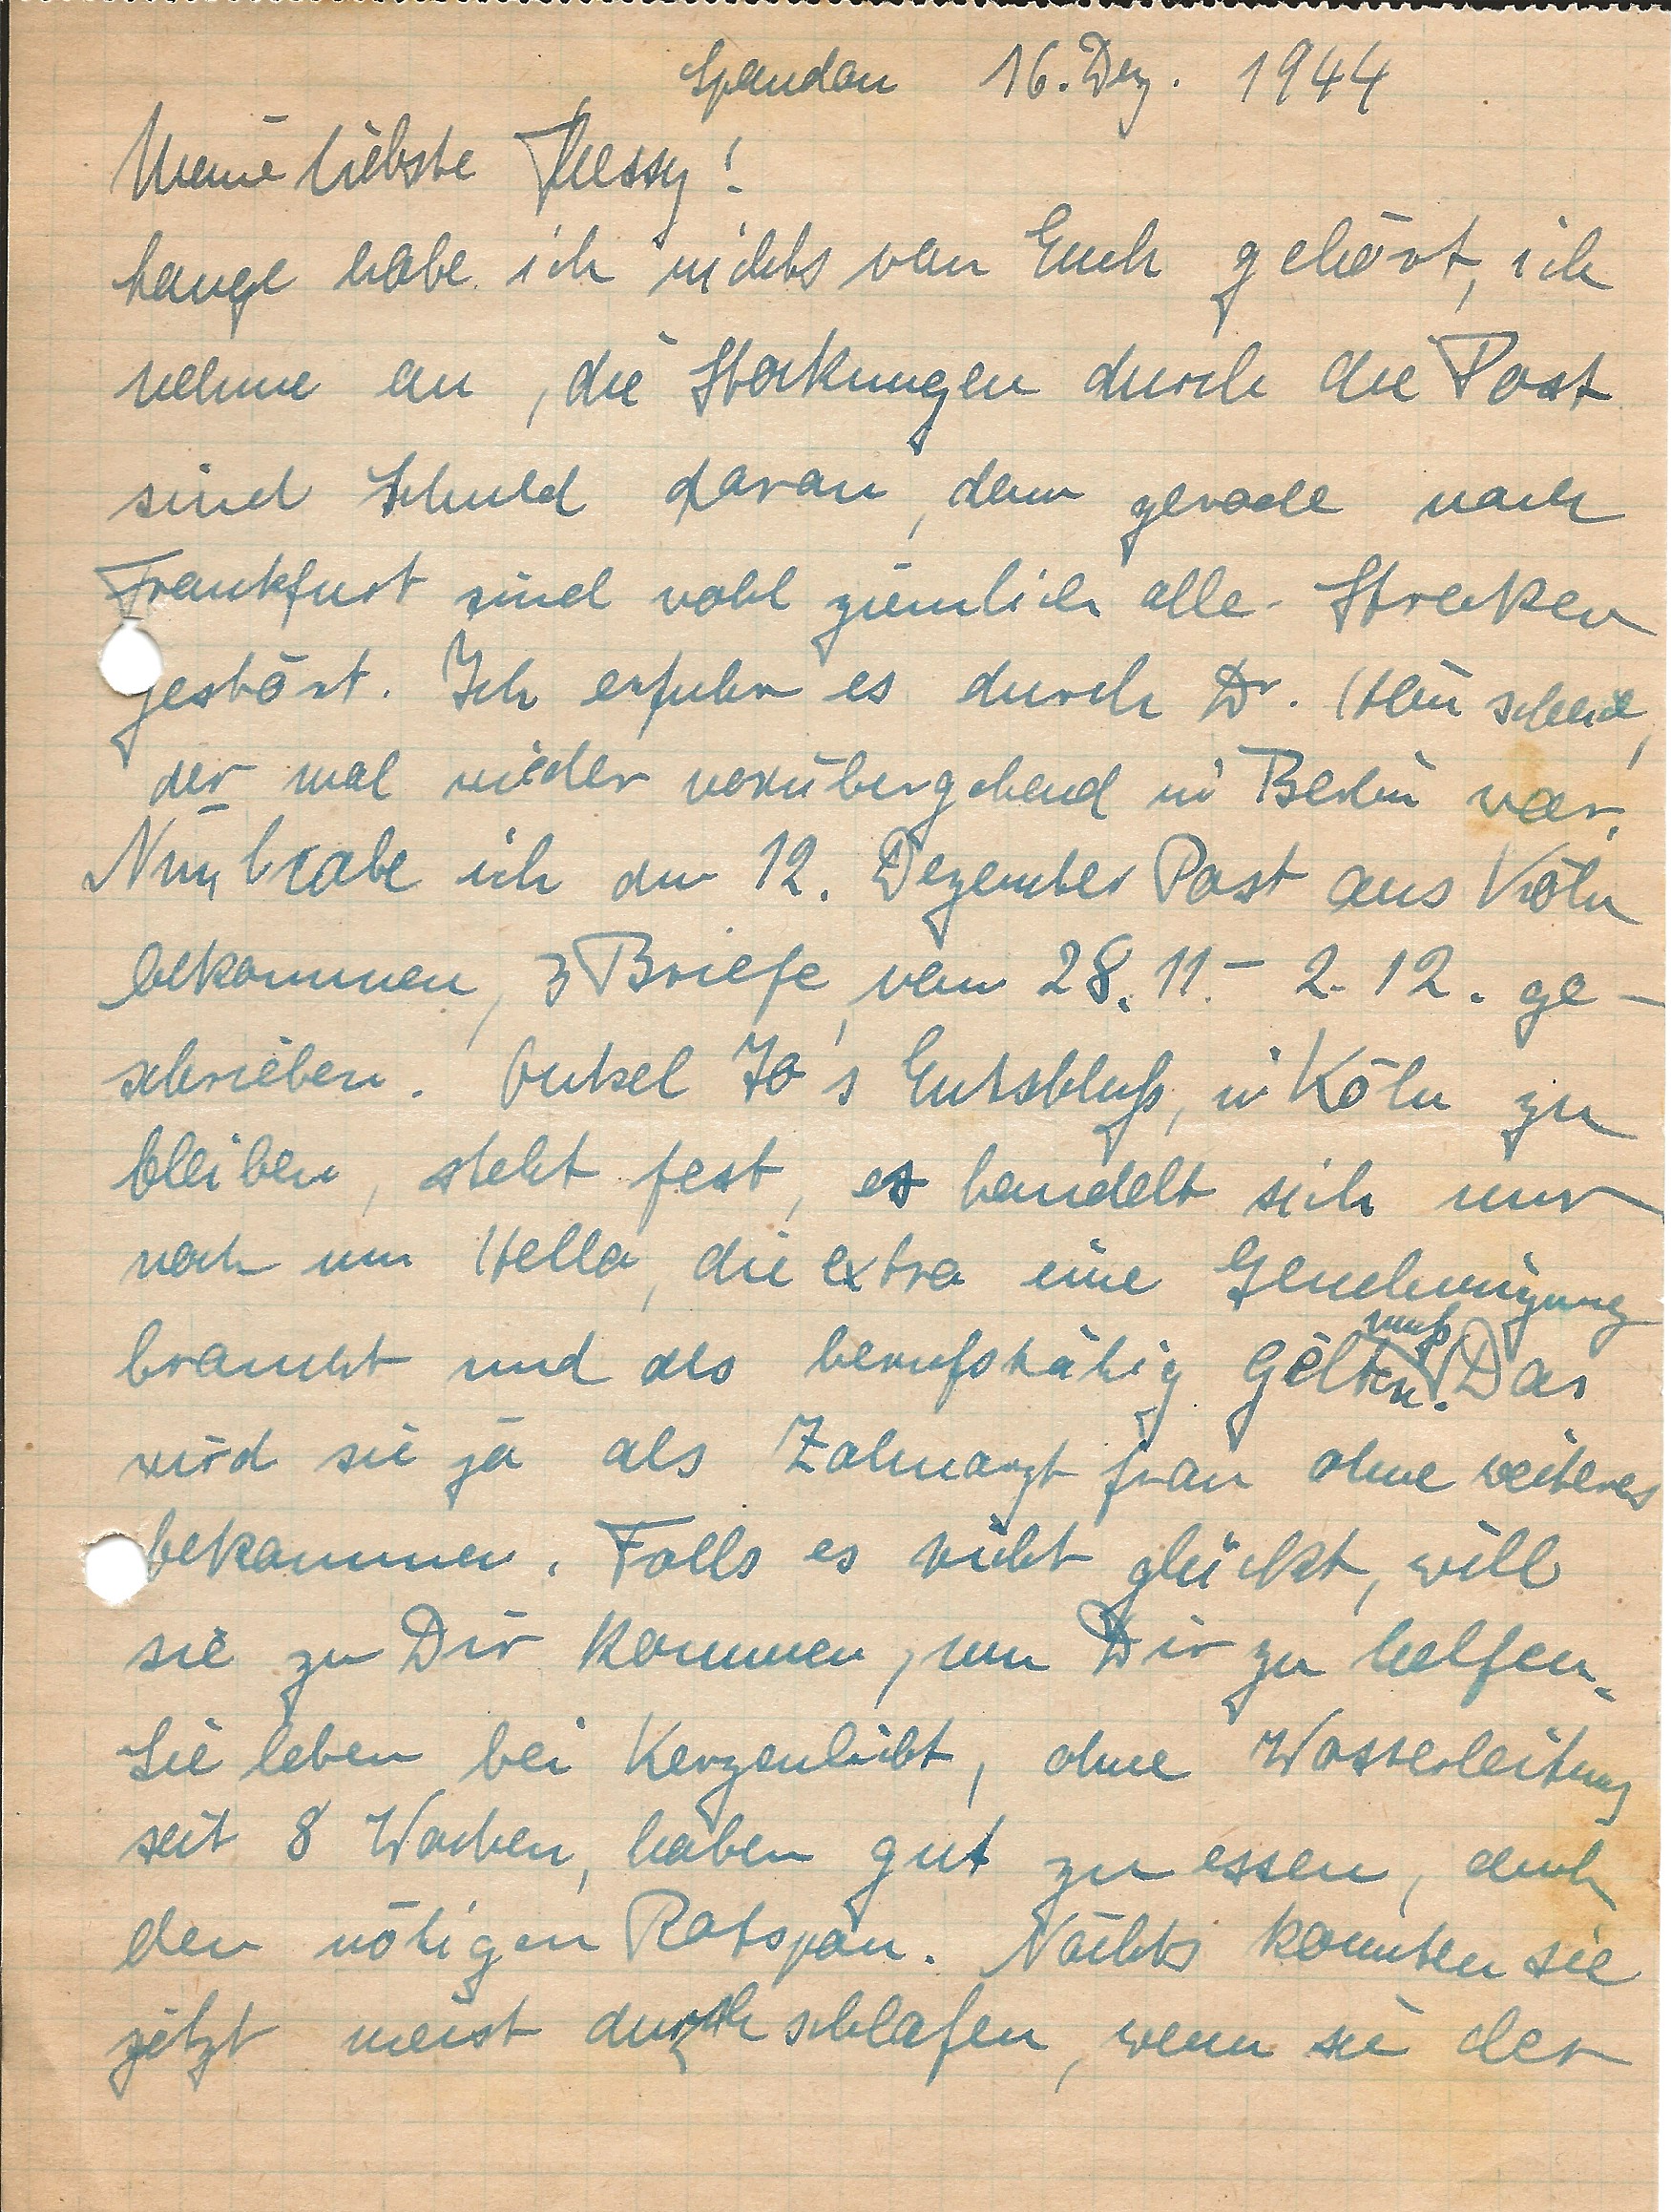 Spandau 16. Dez. 1944
Meine liebste Thessy!
Lange habe ich nichts von Euch gehört, ich
nehme an, die Stockungen durch die Post
sind Schuld daran, denn gerade nach
Frankfurt sind wohl ziemlich alle Strecken
gestört. Ich erfuhr es durch Dr.
der mal wieder vorübergehend in Berlin war.
Nun habe ich den 12. Dezember Post aus Köln
bekommen, 3 Briefe, vom 28. 11. – 2. 12. ge-
schrieben. Onkel Jo's Entschluß, in Köln zu
bleiben, steht fest, es handelt sich nur
noch um Hella, die extra eine Genehmigung
braucht und als berufstätig gelten muß. Das
wird sie ja als Zahnarztfrau ohne weiteres
bekommen. Falls es nicht glückt, will
sie zu Dir kommen, um Dir zu helfen.
Sie leben bei Kerzenlicht, ohne Wasserleitung
seit 8 Wochen, haben gut zu essen, auch
den nötigen Rotspon. Nachts konnten sie
jetzt meist durchschlafen, wenn sie der